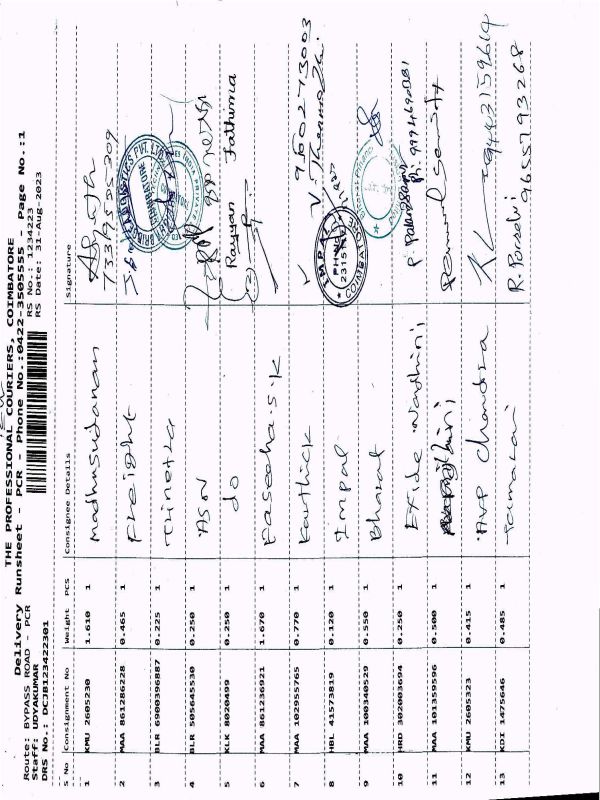 THE PROFESSIONAL COURIERS, COIMBATORE
Delivery Runsheet - PCR - Phone No.:0422-3505555 - Page No.:1
Route: BYPASS ROAD - PCR RS No.: 1234223
Staff: UDYAKUMAR RS Date: 31-Aug-2023
DRS No.: DCJB123422301
S No Consignment No Weight PCS Consignee Details Signature
1 KMU 2605230 1.610 1 Madhusudanan
2 MAA 861286228 0.465 1 Freight
3 BLR 6900396887 0.225 1 Trinetra
4 BLR 505645530 0.250 1 ASN
5 KLK 8020499 0.250 1 do Rayyan Fathima
6 MAA 861236921 1.670 1 Faseeha.S.K
7 MAA 102955765 0.770 1 Karthick 9500273003
8 HBL 41573819 0.120 1 Impal V. IMPAL COIMBATORE
9 MAA 100340529 0.550 1 Bharat
10 HRD 302003694 0.250 1 Exide
11 MAA 101359596 0.500 1
12 KMU 2605323 0.415 1 AVP Chandra 9443159614
13 KDI 1475646 0.485 1 R. 9655793268